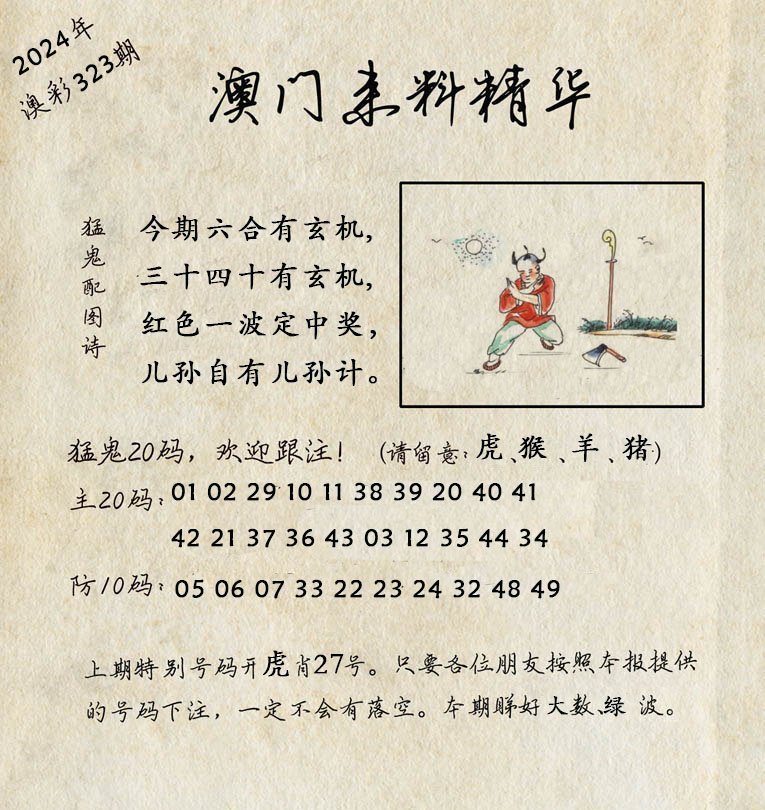 2024年
澳彩323期
澳门来料精华
猛鬼配图诗
今期六合有玄机,
三十四十有玄机,
红色一波定中奖,
儿孙自有儿孙计。
猛鬼20码，欢迎跟注！(请留意：虎、猴、羊、猪)
主20码：01 02 29 10 11 38 39 20 40 41
42 21 37 36 43 03 12 35 44 34
防10码：05 06 07 33 22 23 24 32 48 49
上期特别号码开虎肖27号。只要各位朋友按照本报提供
的号码下注，一定不会有落空。本期睇好大数、绿 波。